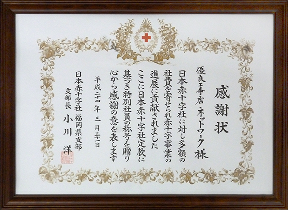 感謝状
優良寿店ネットワーク様
日本赤十字社に対し多額の
社資を寄せられ赤十字事業の
進展に貢献されました
ここに日本赤十字社定款に
基づき特別社員の称号を贈り
心から感謝の意を表します
平成二四年二月二一日
日本赤十字社福岡県支部
支部長 小川洋